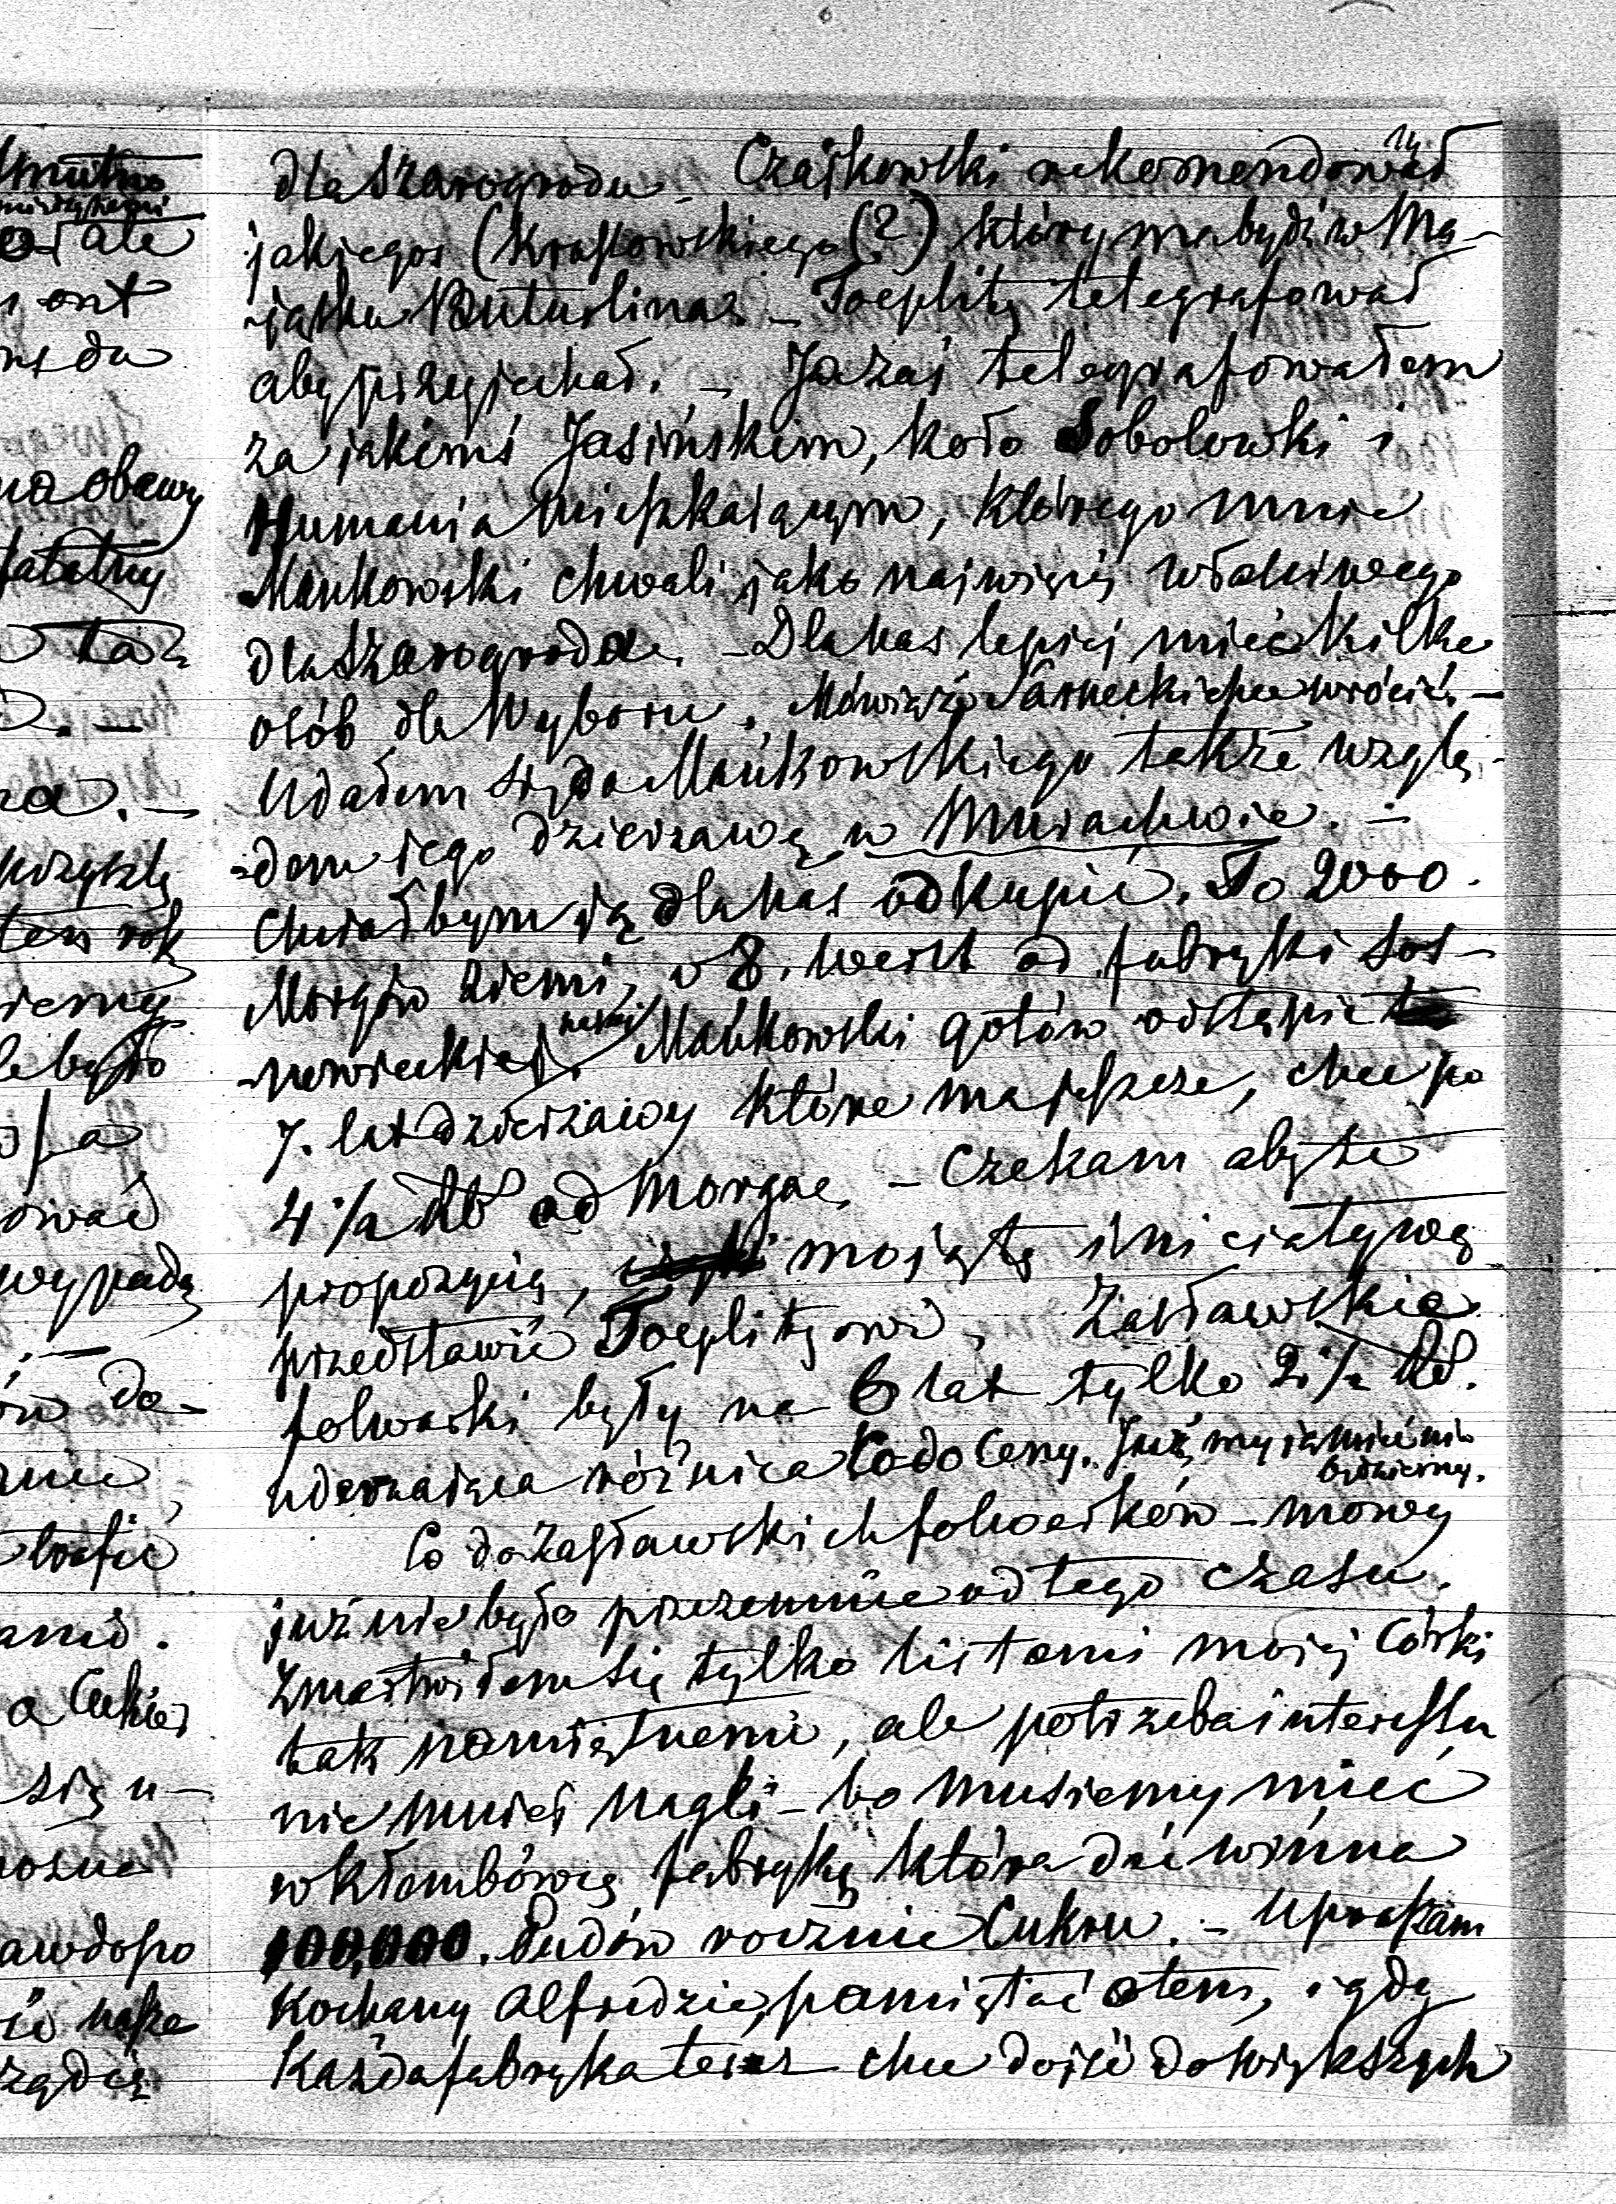 dla Szarogrodu – Czajkowski rekomendował
jakiegoś (Kraszowskiego (?) który ma być w Ma-
-jątku Buturlina. – Toeplitz telegrafował
aby przyjechał. – Ja zaś telegrafowałem
za jakimś Jasińskim, koło Sobolowki i
Humania mieszkającym, którego mnie
Mańkowski chwali jako najwięcej właściwego
dla Szarogroda. – Dla nas lepiej mieć kilka
osób dla wyboru. Mówią że Sarnecki chce wrócić. –
Udałem się do Mańkowskiego także wzglę-
-dem jego dzierżawy w Murachwie. –
Chciałbym ją dla nas odkupić. To 2000.
Morgów ziemi, o 8. werst od fabryki Sos-
-nowieckiej naszej. Mańkowski gotów odstąpić
7. lat dzierżawy które ma jeszcze, chce po
4 1/2 Rb od Morga. – Czekam aby te
propozycią, moją tą iniciatywą
przedstawić Toeplitzowi, Zasławskie
folwarki były na 6 lat tylko 2 1/2 Rb.
uderzająca różnica co do Ceny. Już my ją mieć nie
będziemy.
Co do Zasławskich folwarków – mowy
już nie było przezemnie od tego czasu.
Zmartwiłem się tylko listami mojej Córki
tak namiętnemi, ale potrzeba interessu
nie mniej nagli – bo musiemy mieć
w Kłembówce fabrykę która dać winna
100,000. Pudów rocznie Cukru. – Upraszam
Kochany Alfredzie, pamiętać o tem, i gdy
Każda fabryka teraz chce dojść do większych